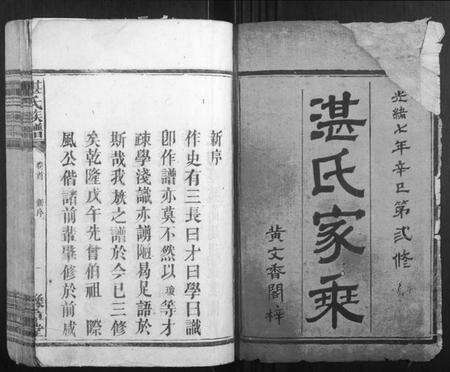 光緒七年辛巳第弍修
湛氏家乘
黃文香閣梓
新序
作史有三長曰才曰學曰識
卽作譜亦莫不然以璇等才
疎學淺識亦謭陋易足語於
斯哉我族之譜於今已三修
矣乾隆戊午先曾伯祖 際
風公偕諸前輩肇修於前咸
湛氏族譜
卷首 新序